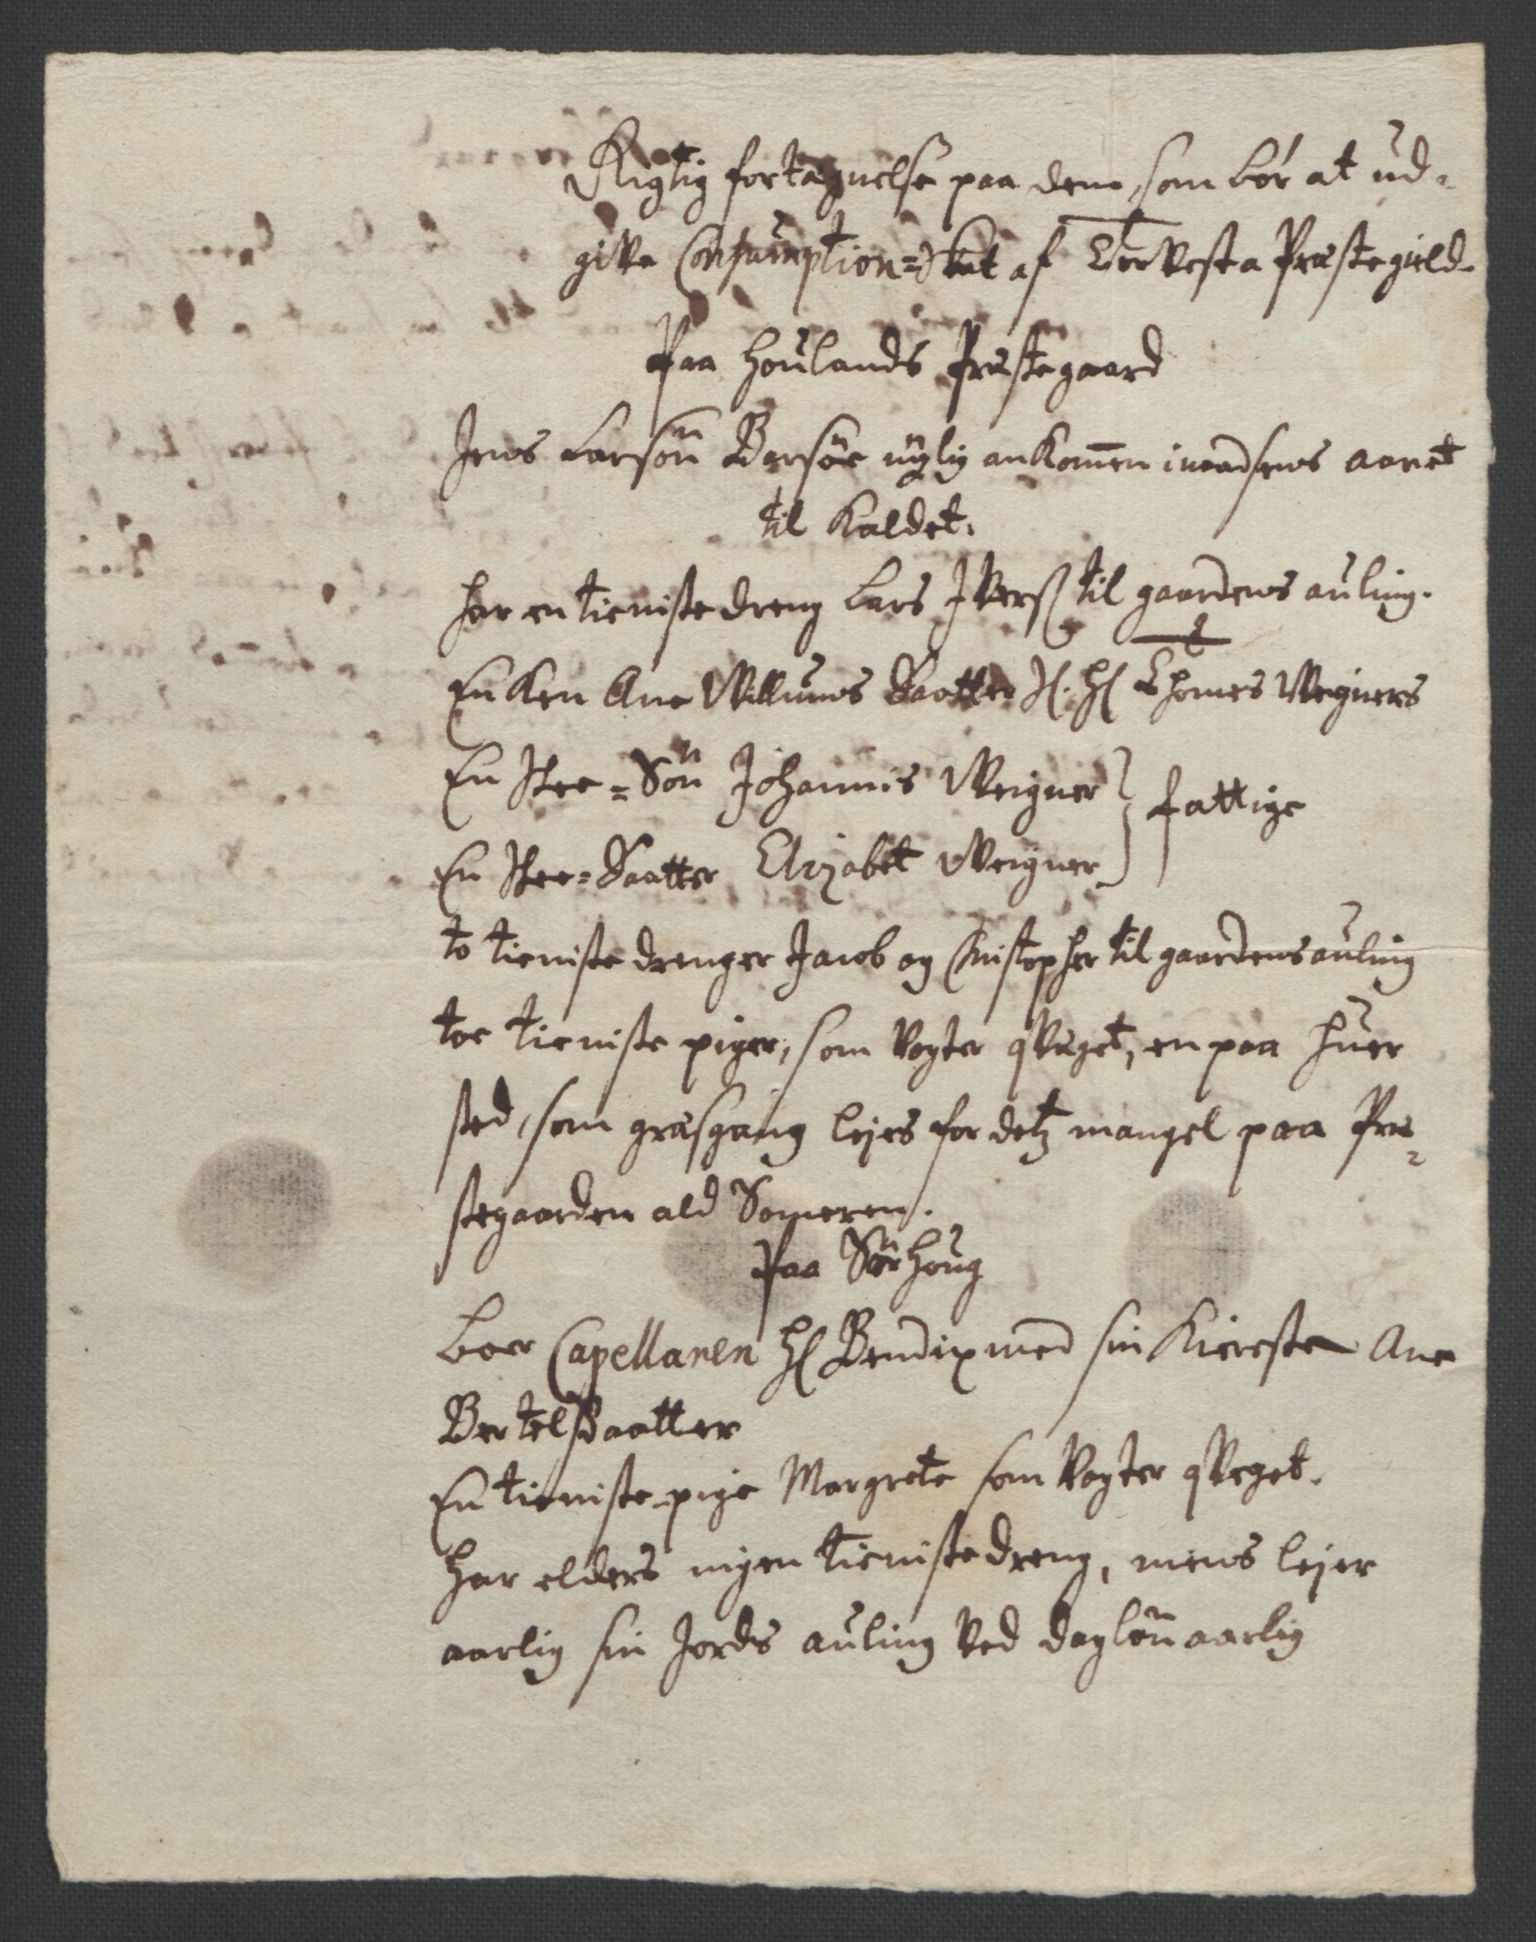 Rigtig fortægnelse paa dem, som bør at ud-
give Consumption=Skat af Torvesta Præstegield.
Paa Houlands Præstegaard
Jens Larsøn Borsøe nylig ankommen inværendes aaret
til Kaldet.
har en tieniste dreng Lars Iverß til gaardens auling.
Enken Ane Willums Daatter S. Hl Thomes Wegners
En Stee=Søn Johannis Weigner
En Stee=Daatter Elizabet Weigner } fattige
to tieniste drenger Jacob og Christopher til gaardens auling
toe tieniste piger, som vogter qveget, en paa huer
sted, som græsgang lejes for detz mangel paa Præ-
stegaarden ald Someren.
Paa Sørhoug
Boer Capellanen Hl Bendix med sin Kiereste Ane
Bertelsdaatter
En tieniste pige Margrete som vogter qveget.
Har elders ingen tieniste dreng, mens lejer
aarlig sin Jords auling ved dagløn aarlig